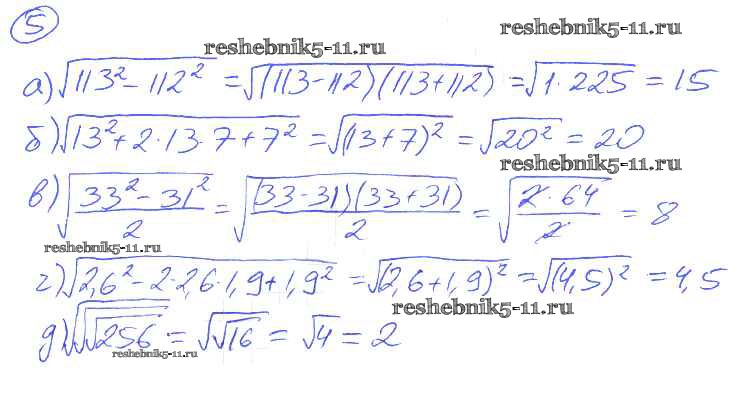 5
reshebnik5-11.ru
reshebnik5-11.ru
а) √(113² - 112²) = √((113-112)(113+112)) = √(1·225) = 15
б) √(13² + 2·13·7 + 7²) = √((13+7)²) = √(20²) = 20
reshebnik5-11.ru
в) √((33² - 31²)/2) = √((33-31)(33+31)/2) = √(2·64/2) = 8
reshebnik5-11.ru
г) √(2,6² - 2·2,6·1,9 + 1,9²) = √((2,6+1,9)²) = √((4,5)²) = 4,5
reshebnik5-11.ru
д) √√√256 = √√16 = √4 = 2
reshebnik5-11.ru